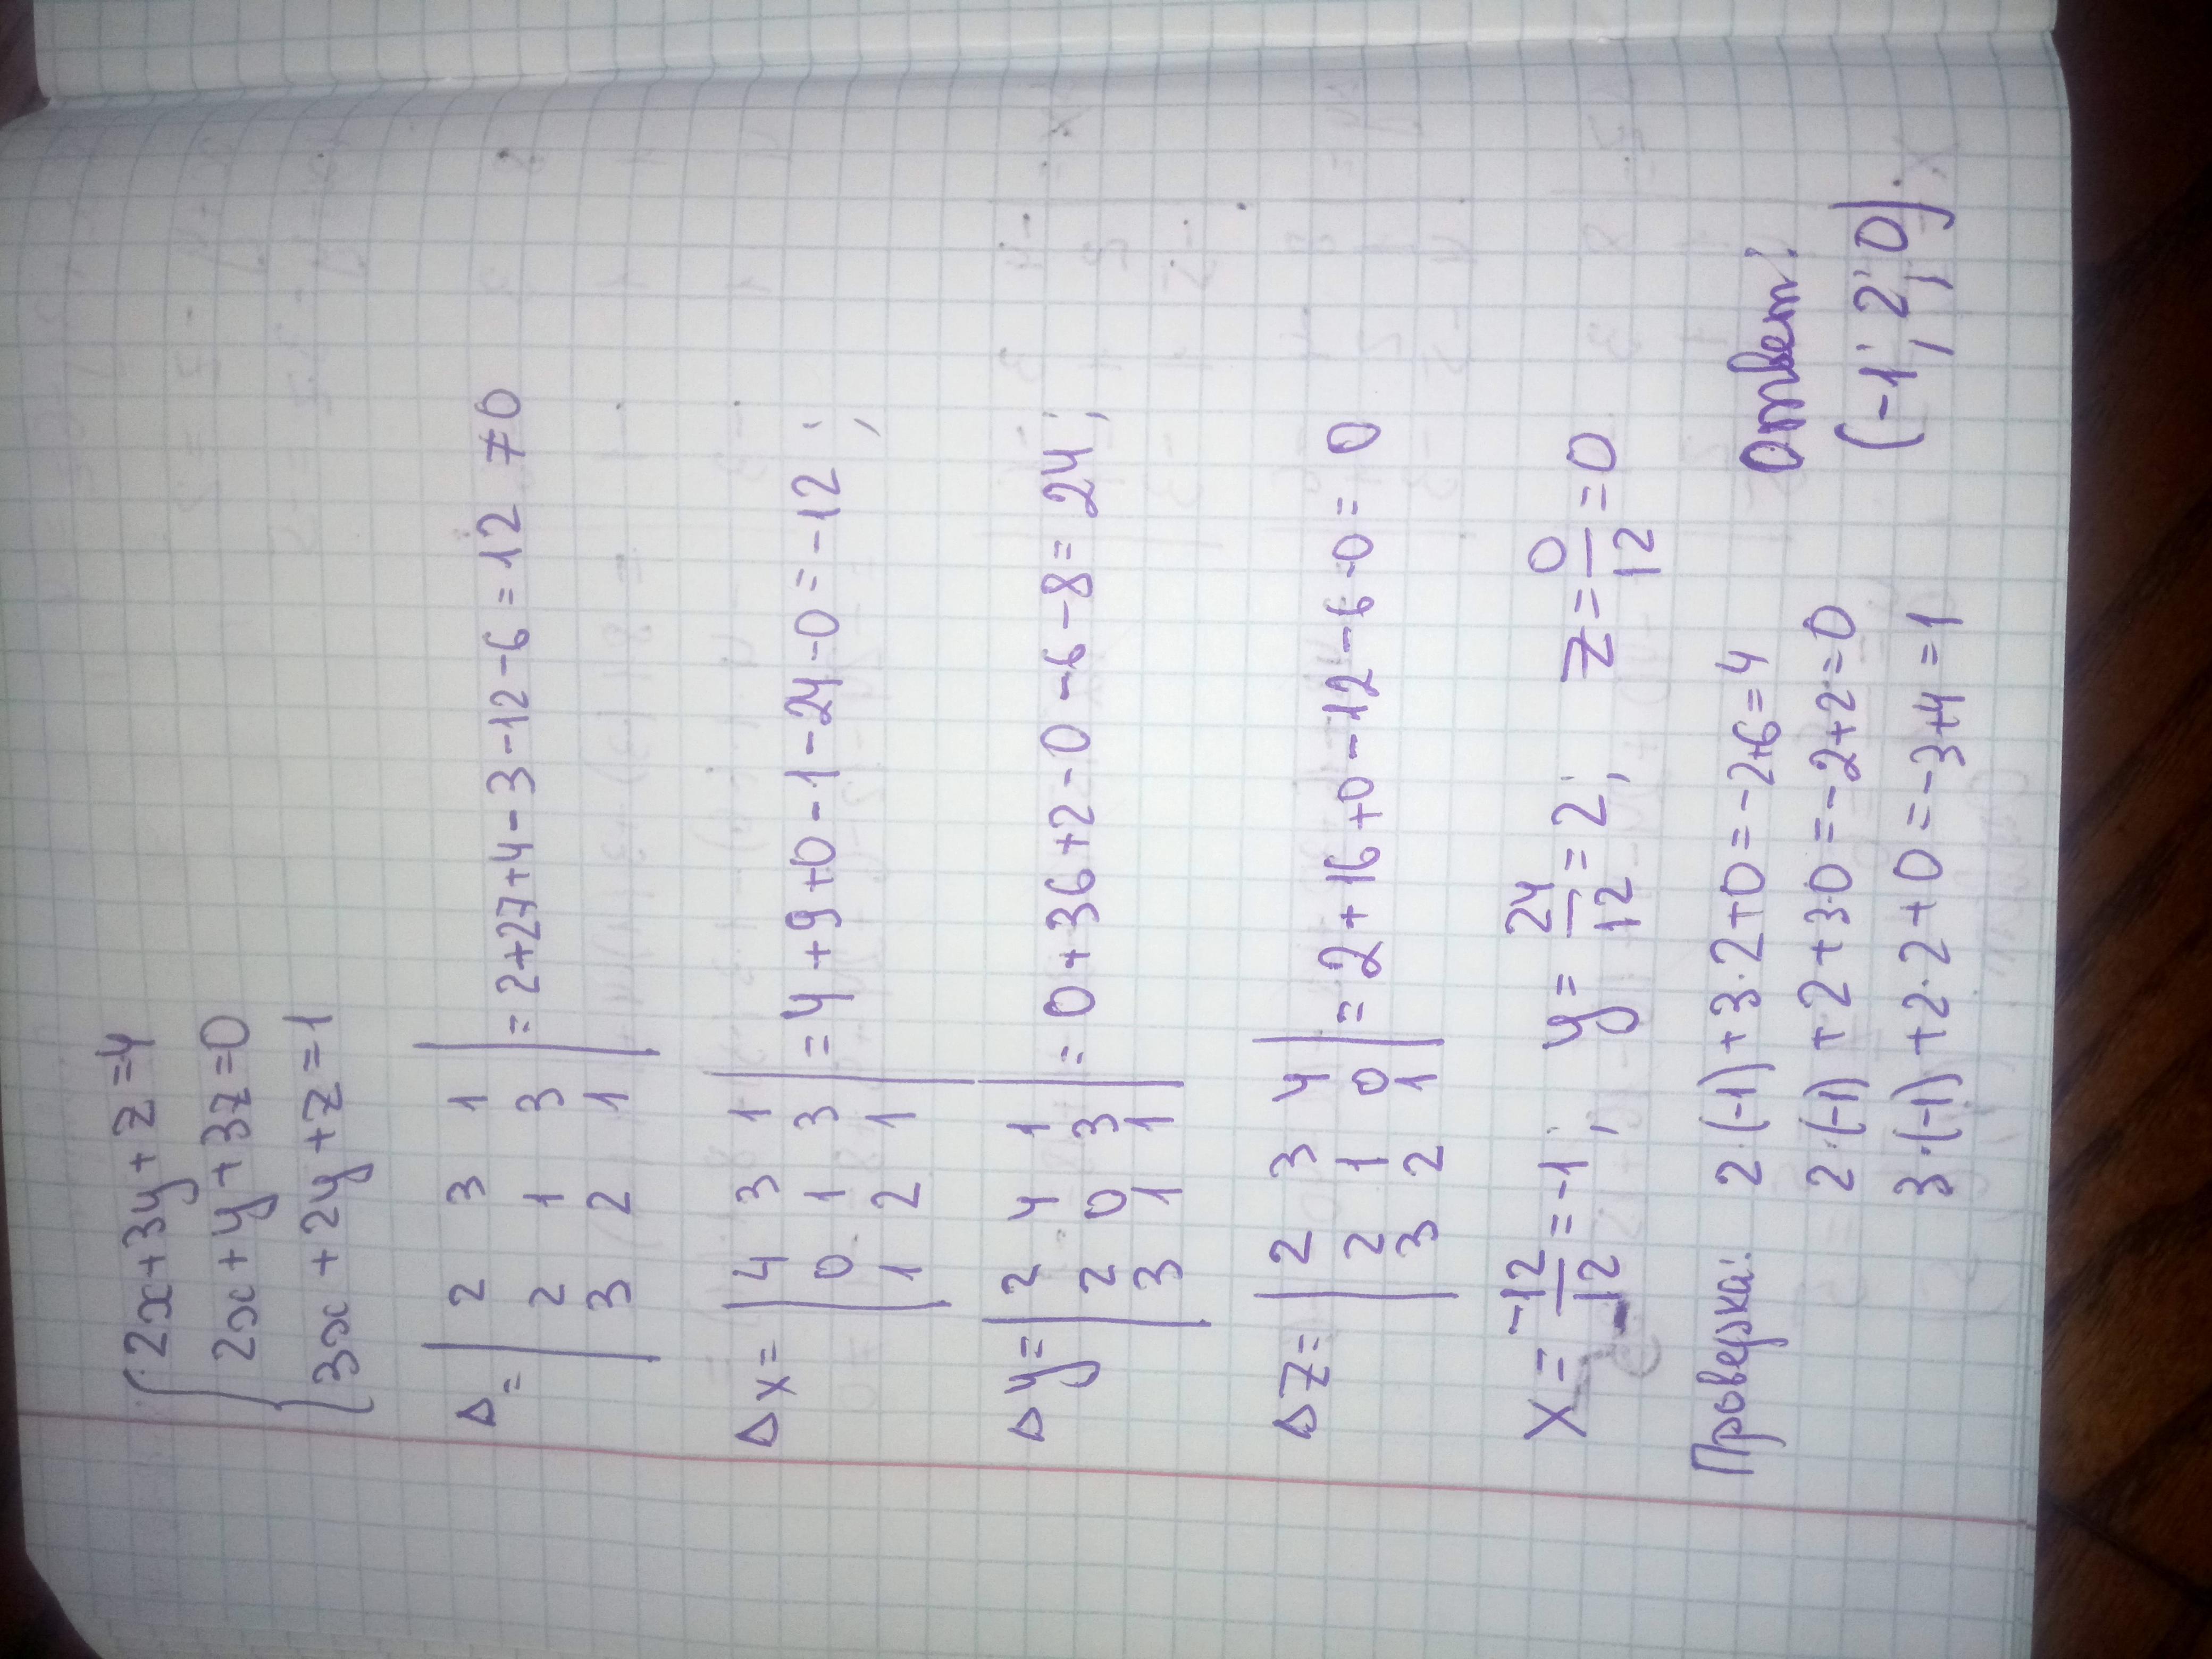 {2x+3y+z=4
2x+y+3z=0
3x+2y+z=1
Δ= |2 3 1
2 1 3
3 2 1| =2+27+4-3-12-6=12 ≠0
Δx= |4 3 1
0 1 3
1 2 1| =4+9+0-1-24-0=-12;
Δy= |2 4 1
2 0 3
3 1 1| =0+36+2-0-6-8=24;
Δz= |2 3 4
2 1 0
3 2 1| =2+16+0-12-6-0=0
x=-12/12=-1; y=24/12=2; z=0/12=0
Проверка: 2·(-1)+3·2+0=-2+6=4
2·(-1)+2+3·0=-2+2=0
3·(-1)+2·2+0=-3+4=1
Ответ:
(-1; 2; 0).